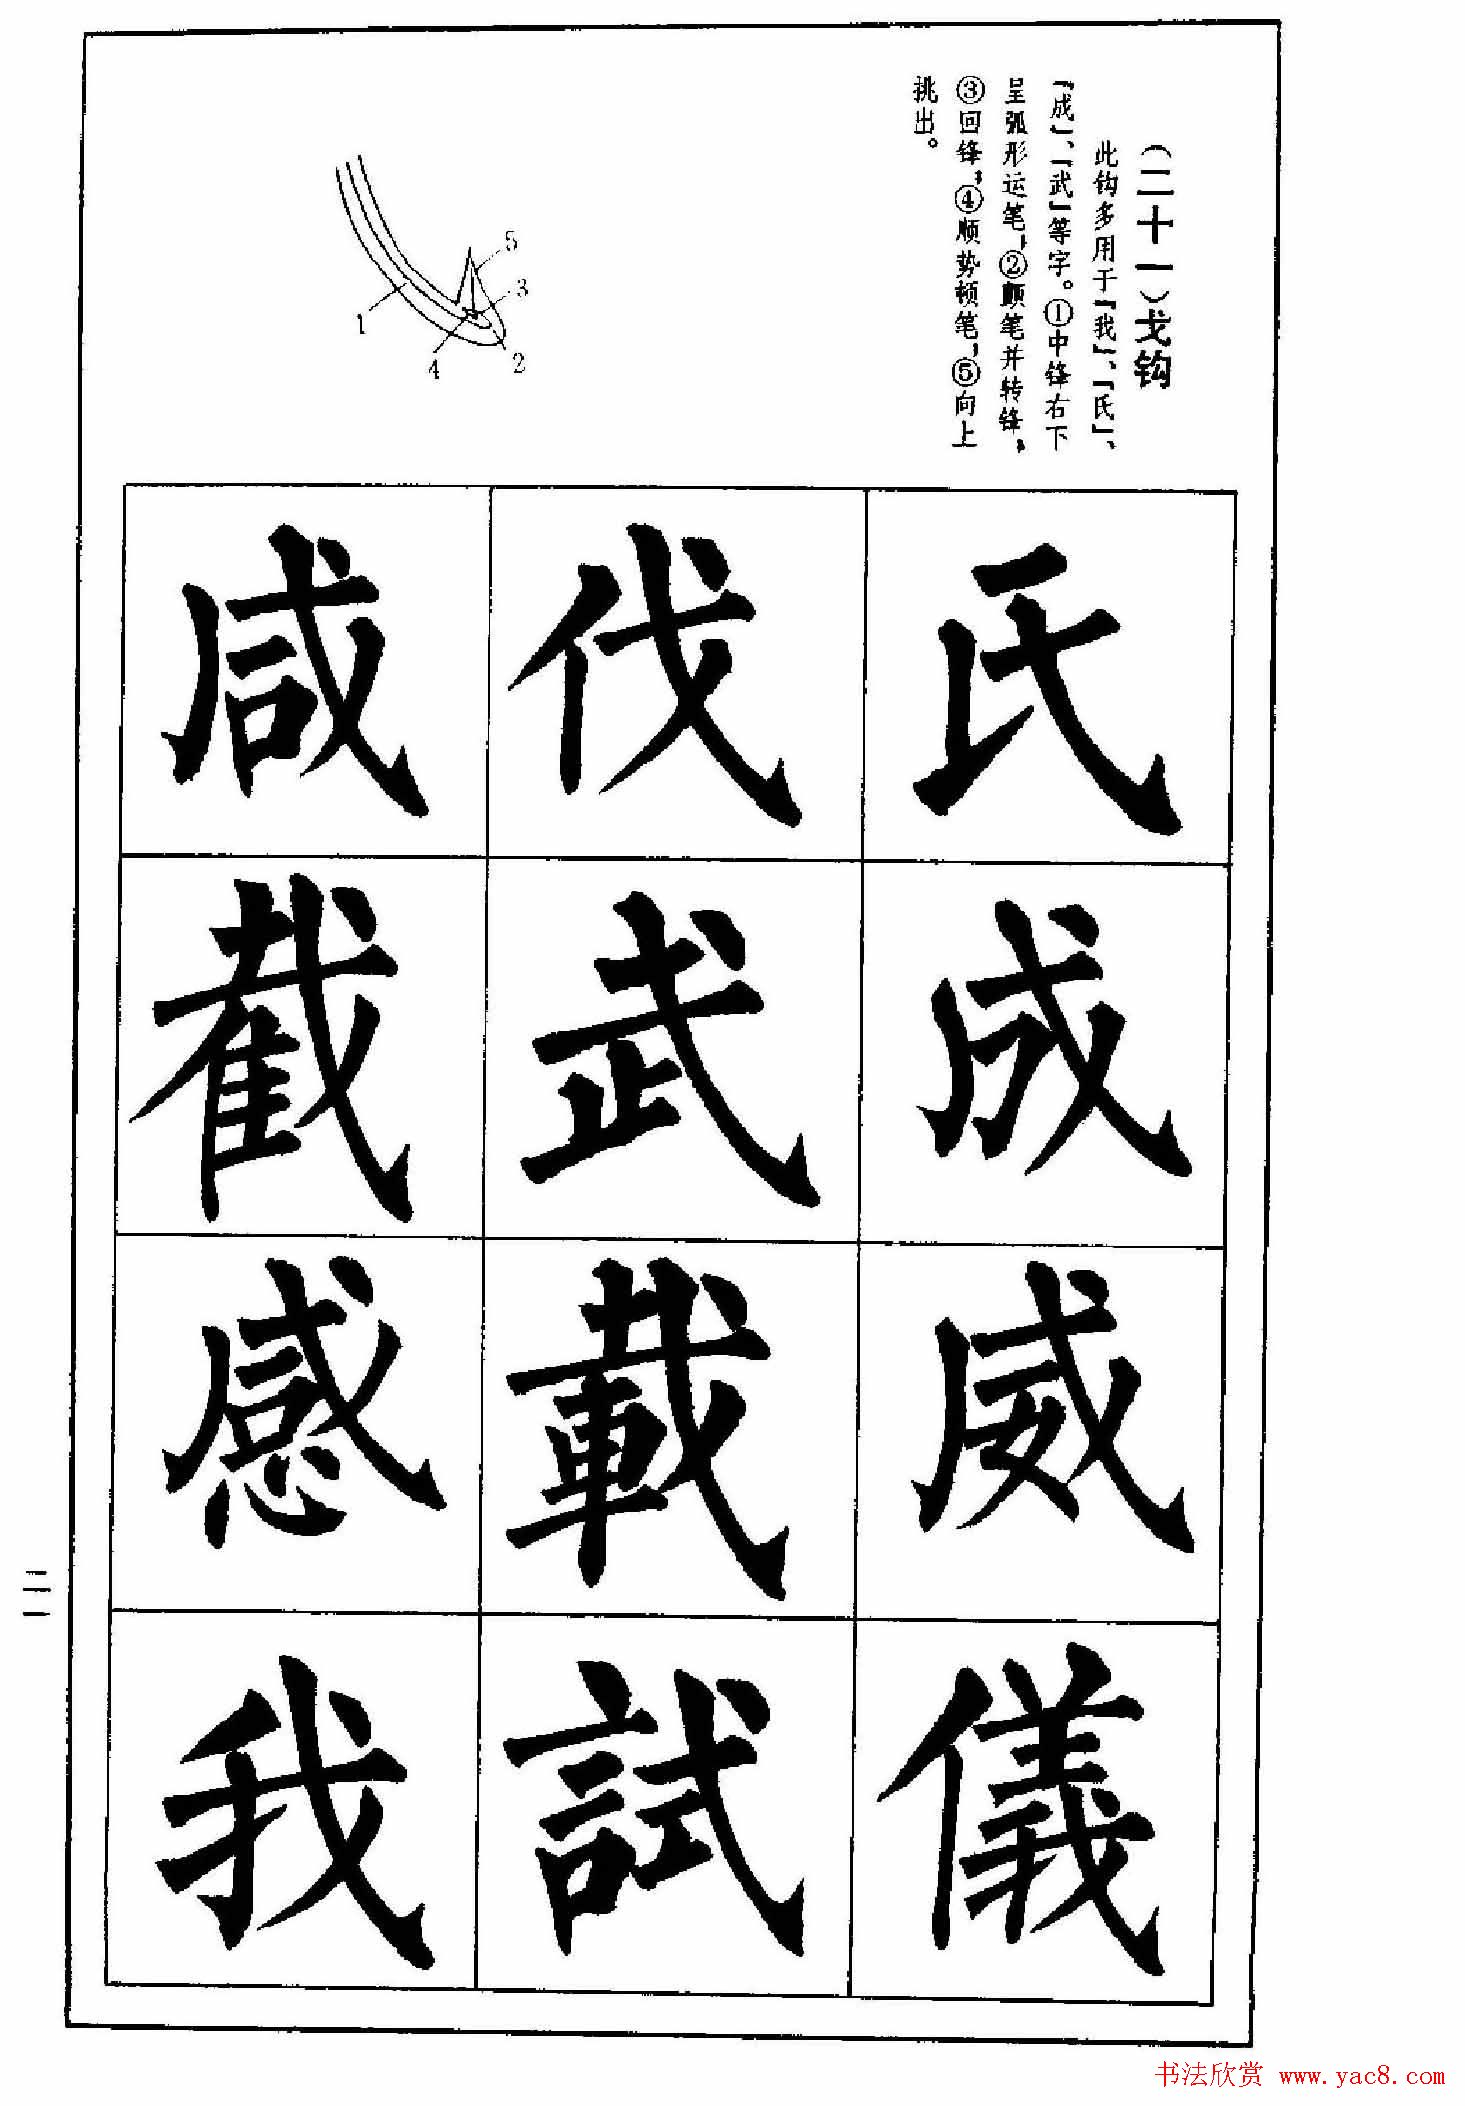 （二十一）戈钩
此钩多用于「我」、「氏」、
「成」、「武」等字。①中锋右下
呈弧形运笔；②顿笔并转锋；
③回锋；④顺势顿笔；⑤向上
挑出。
1
2
3
4
5
氏
成
威
儀
伐
武
載
試
咸
截
感
我
二一
书法欣赏 www.yac8.com